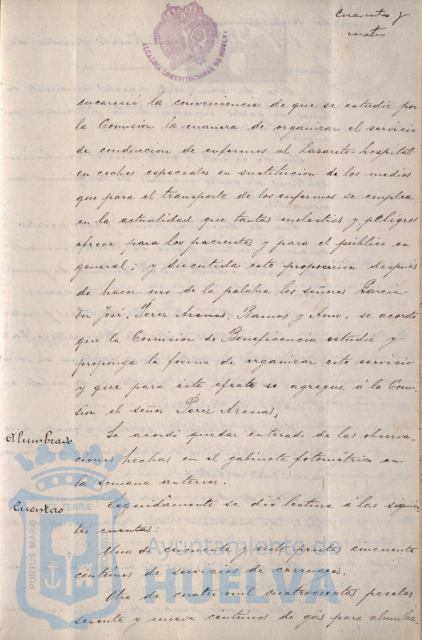 Cuarenta y
cuatro
ALCALDIA CONSTITUCIONAL DE HUELVA
encareció la conveniencia de que se estudie por
la Comisión la manera de organizar el servicio
de conducción de enfermos al Lazareto-hospital
en coches especiales en sustitución de los medios
que para el transporte de los enfermos se emplea
en la actualidad que tantas molestias y peligros
ofrece para los pacientes y para el público en
general; y discutida esta proposición después
de hacer uso de la palabra los señores García
don José, Perez Arenas, Ramos y se acordó
que la Comisión de Beneficencia estudie y
proponga la forma de organizar este servicio
y que para este efecto se agregue á la Comi-
sion el señor Perez Arenas.
Alumbrado
Se acordó quedar enterado de las observa-
ciones hechas en el gabinete fotométrico en
la semana anterior.
Cuentas
Seguidamente se dió lectura á las siguien-
tes cuentas:
Una de cincuenta y siete pesetas cincuenta
centimos de servicios de carruages.
Otra de cuatro mil cuatrocientas pesetas
sesenta y nueve centimos de gas para alumbra-
PORTUS MARIS
TERRAE
Ayuntamiento de
HUELVA